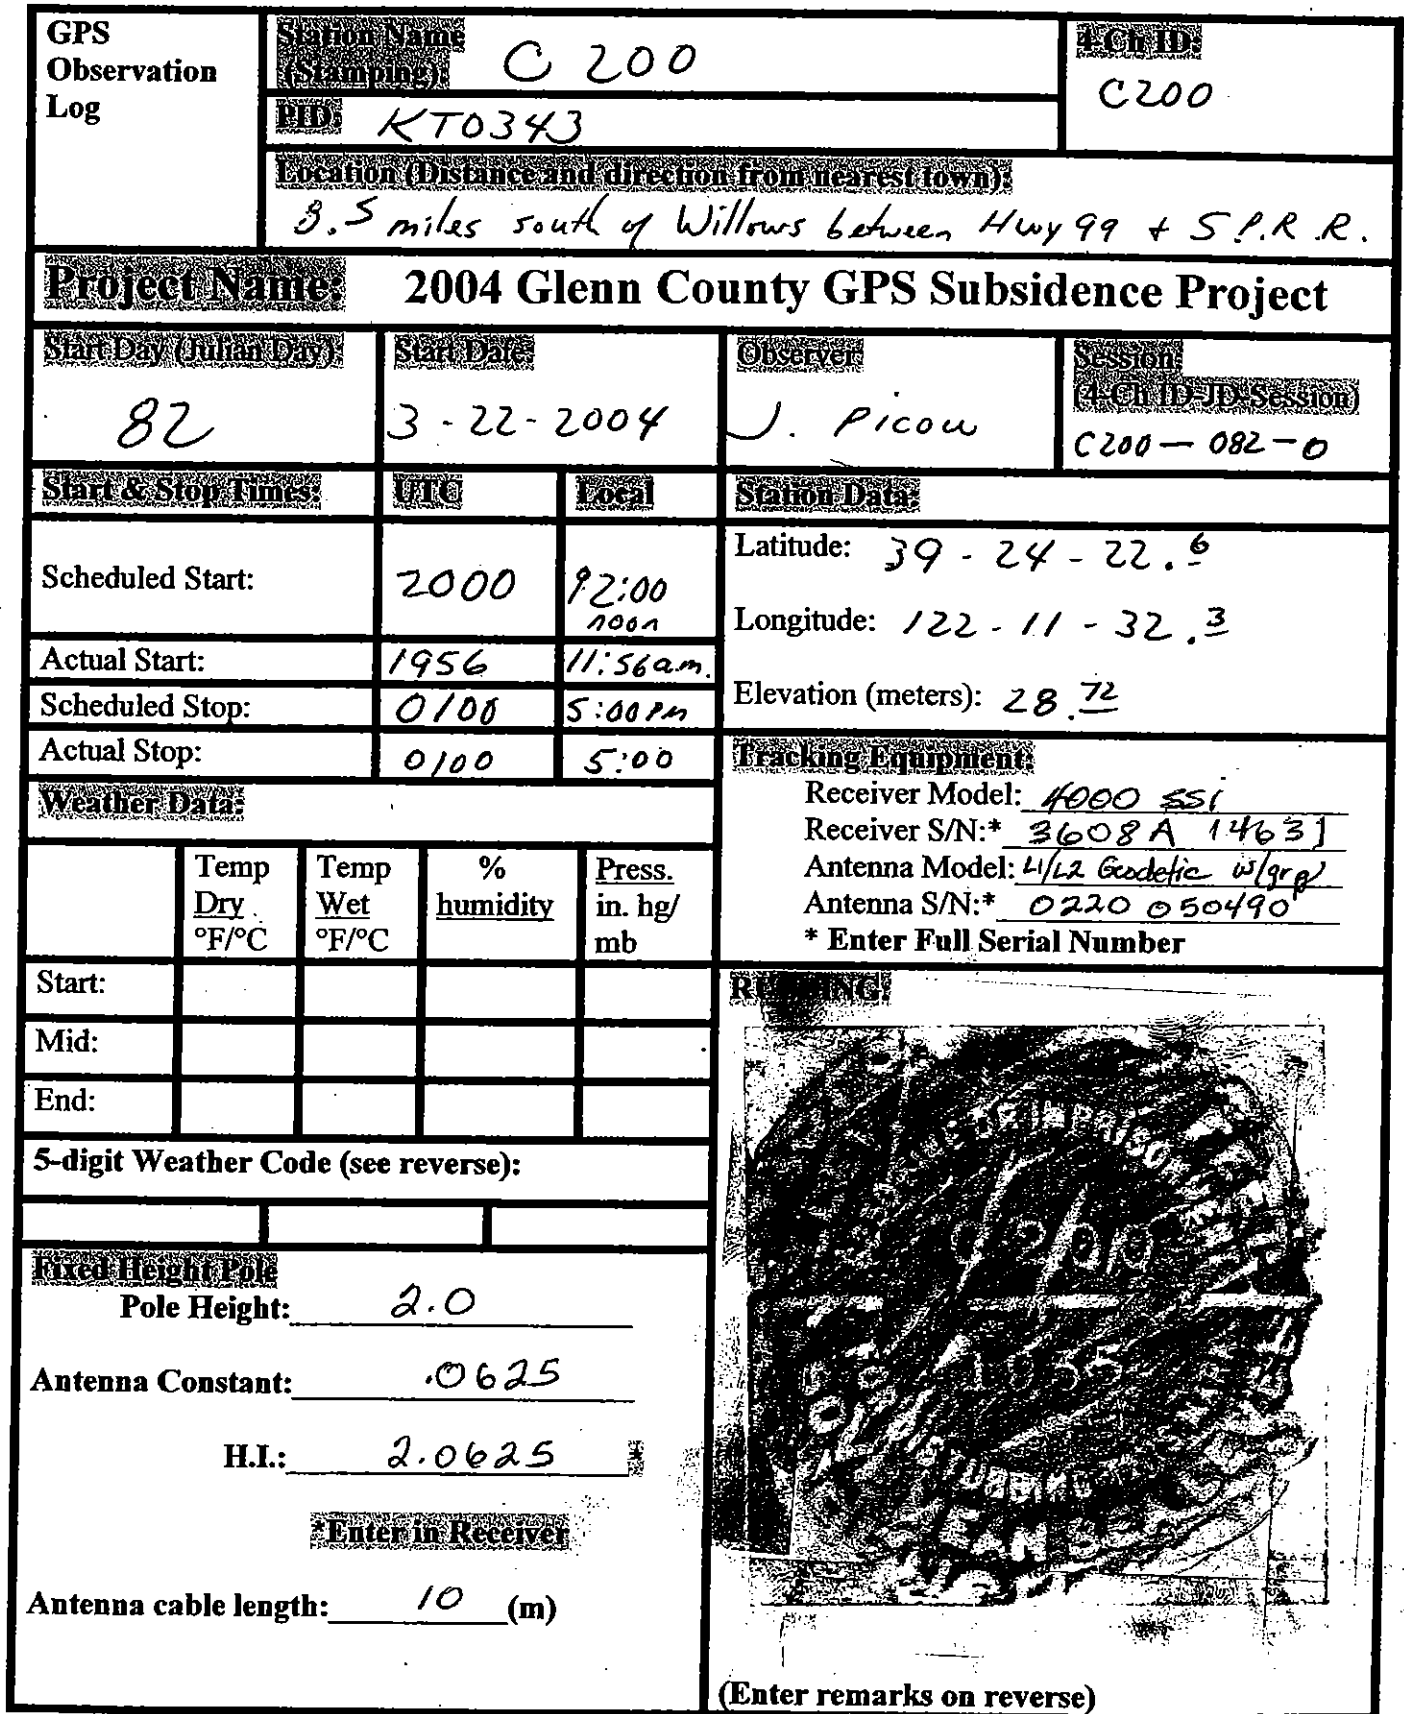 GPS
Observation
Log
Station Name
(Stamping):
C 200
4-Ch ID:
C200
PID: KT0343
Location (Distance and direction from nearest town):
8.5 miles south of Willows between Hwy 99 + S P.R.R.
Project Name: 2004 Glenn County GPS Subsidence Project
Start Day (Julian Day):
82
Start Date:
3-22-2004
Observer:
J. Picou
Session:
(4-Ch ID-JD-Session)
C200-082-0
Start & Stop Times: UTC Local
Scheduled Start: 2000 12:00
noon
Actual Start: 1956 11:56a.m.
Scheduled Stop: 0100 5:00PM
Actual Stop: 0100 5:00
Station Data:
Latitude: 39-24-22.6
Longitude: 122-11-32.3
Elevation (meters): 28.72
Tracking Equipment:
Receiver Model: 4000 SSi
Receiver S/N:* 3608A 14631
Antenna Model: L1/L2 Geodetic w/grp
Antenna S/N:* 0220050490
* Enter Full Serial Number
Weather Data:
Temp
Dry
°F/°C
Temp
Wet
°F/°C
%
humidity
Press.
in. hg/
mb
Start:
Mid:
End:
5-digit Weather Code (see reverse):
Fixed Height Pole
Pole Height: 2.0
Antenna Constant: .0625
H.I.: 2.0625 *
*Enter in Receiver
Antenna cable length: 10 (m)
RUBBING:
C 200
1955
(Enter remarks on reverse)